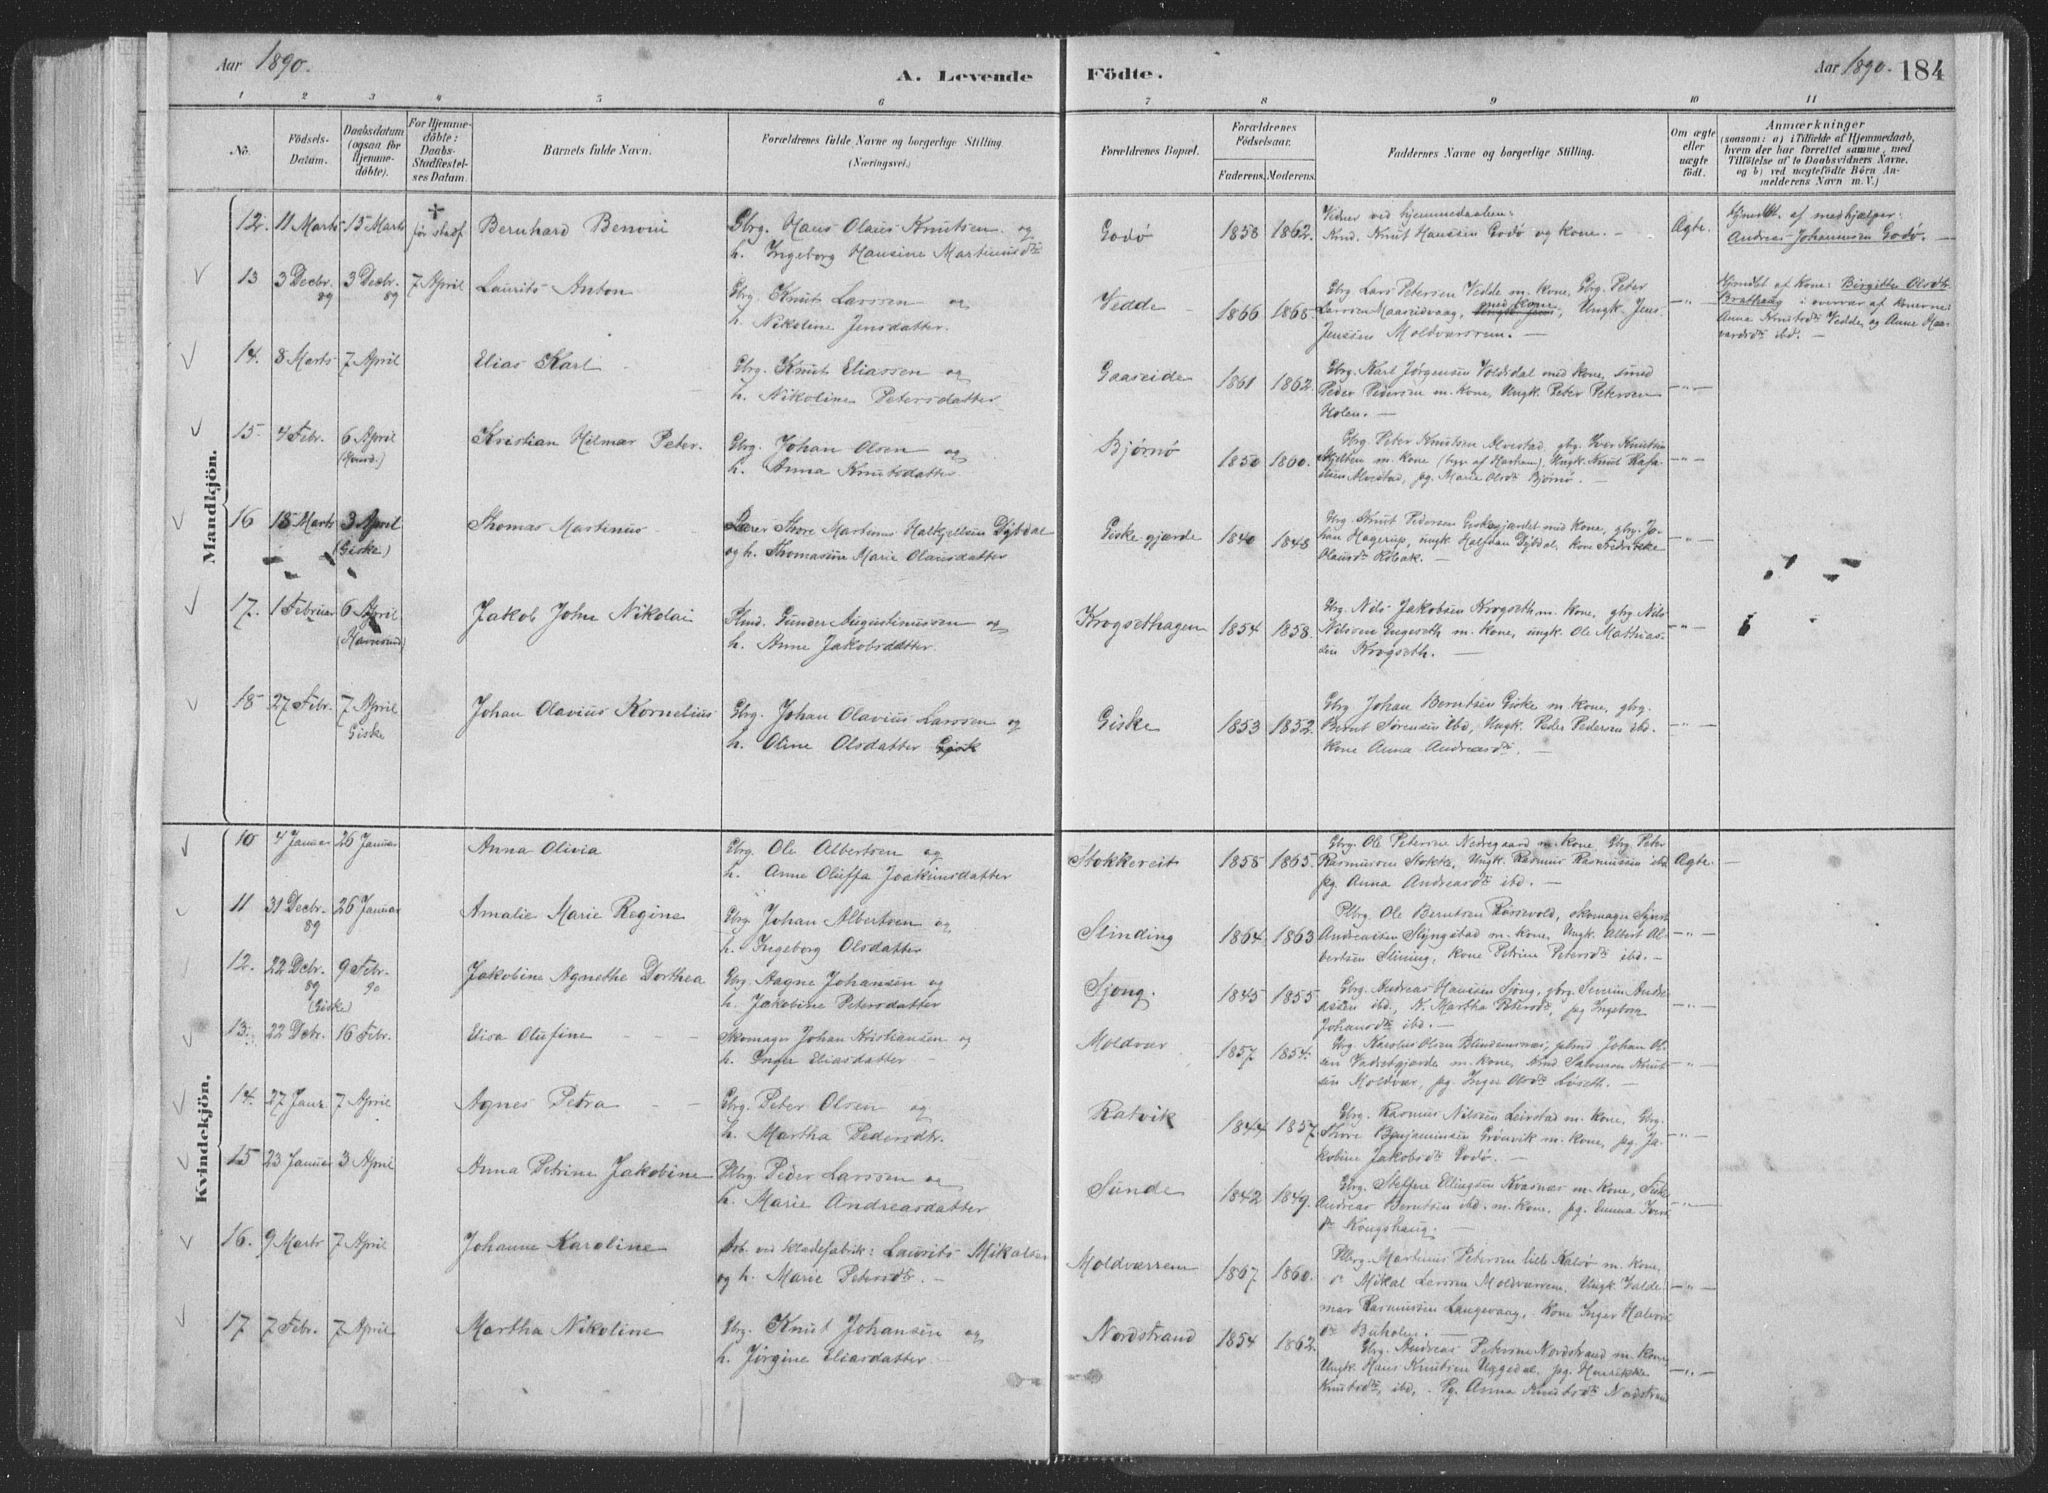 Aar 1890.
A. Levende Födte.
Aar 1890. 184
1 2 3 4 5 6 7 8 9 10 11
No.
Födsels-Datum.
Daabsdatum (ogsaa for Hjemme-döbte).
For Hjemme-döbte: Daabs-Stadfæstel-ses Datum.
Barnets fulde Navn.
Forældrenes fulde Navne og borgerlige Stilling. (Næringsvei.)
Forældrenes Bopæl.
Forældrenes Födselsaar.
Faderens. Moderens.
Faddernes Navne og borgerlige Stilling.
Om ægte eller uægte födt.
Anmærkninger
(saasom: a) i Tilfælde af Hjemmedaab,
hvem der har forrettet samme, med
Tilföielse af to Daabsvidners Navne.
og b) ved uægtefödte Börn An-
melderens Navn m. V.)
Mandkjön.
12. 11 Marts 15 Marts † før stadf Bernhard Benoni Gbrg. Hans Olaus Knutsen og
h. Ingeborg Hansine Martinusdtr
Godø 1858 1862. Vidner ved hjemmedaaben:
Knud Hanssen Godø og kone. - Ægte.
af medhjælper:
Andreas Johannesen Godø. -
13 3 Decbr. 89 3 Decbr. 89 7 April Laurits Anton Gbrg. Knut Larssen og
h. Nikoline Jensdatter.
Vedde 1866 1865 Gbrg Lars Petersen Vedde m. kone, Gbrg. Peter
Larssen Maaseidvaag, med kone, Ungk. Jens
Jenssen Moldværsrem. - -"-
Hjmdbt af Kone: Birgitte Olsdtr
Brathaug i overvær af konerne:
Anna Knutsdtr Vedde, og Anne Haa-
vardsdtr ibd. -
14. 8 Marts 7 April Elias Karl Gbrg. Knut Eliassen og
h. Nikoline Petersdatter
Gaaseide 1861 1862. Gbrg. Karl Jørgensen Voldsdal med kone, smed
Peder Pedersen m. kone, Ungk. Peter Petersen
Holen. - -"-
15. 4 Febr. 6 April Kristian Hilmar Peter. Gbrg. Johan Olsen og
h. Anna Knutsdatter
Bjørnø 1850 1860. Gbrg. Peter Knutsen Alvestad, gbrg. Iver Knutsen
m. kone (byr af Harham), Ungk. Knut Rafa-
Alvestad, pg. Marie Olsdtr Bjørnø. - -"-
16 18 Marts 3 April (Giske) Thomas Martinus Lærer Thore Martinus Halkjelsen Dybdal
og h. Thomasine Marie Olausdatter
Giske gjærde 1840 1848 Gbrg. Knut Pedersen Giskegjærdet med kone, gbrg. Jo-
han Hagerup, ungk Halfdan Dybdal, kone Fredrikke
Olausdtr Robak. - -"-
17. 1 Februar 6 April Jakob John Nikolai Gunder Augustinussen og
h. Anne Jakobsdatter.
Krogsethagen 1854 1858. Gbrg. Nils Jakobsen Krogseth m. kone, gbrg Nils
Nilssen Engeseth m. kone, ungk. Ole Mathias-
sen Krogseth. - -"-
18 27 Febr. 7 April Giske Johan Olavius Kornelius Gbrg. Johan Olavius Larssen og
h. Oline Olsdatter
Giske 1853 1852. Gbrg Johan Berntsen Giske m. kone, gbrg.
Bernt Sørensen ibd, Ungk. Peder Pedersen ibd.
kone Anna Andreasdtr. - -"-
Kvindekjön.
10 4 Januar 26 Januar Anna Olivia Gbrg. Ole Albertsen og
h. Anne Oluffa Joakimsdatter
Stokkereit 1858 1865. Gbrg. Ole Petersen Nedregaard m. kone Gbrg Peter
Rasmussen Stokke, Ungk. Rasmus Rasmussen ibd.
pg. Anna Andreasdtr ibd. - Ægte. -
11 31 Decbr. 89 26 Januar Amalie Marie Regine Gbrg. Johan Albertsen og
h. Ingeborg Olsdatter
Slinding 1864 1863 Ole Berntsen Røssevold, skomager
Andreassen Slyngstad m. kone, Ungk. Albert Al-
bertsen Slinning, kone Petrine Petersdtr ibd. - -"-
12. 22 Dcbr. 89 (Giske) 9 Febr. 90 Jakobine Agnethe Dorthea Gbrg. Aagne Johansen og
h. Jakobine Petersdatter
Sjong. 1845 1855. Gbrg. Andreas Hanssen Sjong, gbrg. Severin Andre-
assen ibd., K. Martha Petersdtr, pg Ingeborg
Johansdtr ibd. - -"-
13. 22 Dcbr. 16 Febr. Elisa Olufine - - Skomager Johan Kristiansen og
h. Inger Eliasdatter -
Moldvær 1857 1854. Gbrg. Karolus Olsen Blindemsnæs, Johan Ol-
sen m. kone, Salomon Knut-
sen Moldvær, pg. Inger Olsdtr Løseth. - -"-
14. 27 Janr. 7 April Agnes Petra - - Gbrg. Peter Olsen og
h. Martha Pedersdtr.
Ratvik 1844 1857. Gbrg. Rasmus Nilssen Leirstad m. kone, Gbrg.
Thore Benjaminsen Grønvik m. kone, pg. Ja-
kobine Jakobsdtr Godø. - -"-
15 23 Januar 3 April Anna Petrine Jakobine Plbrg. Peder Larssen og
h. Marie Andreasdatter
Sunde 1842 1849. Gbrg. Steffen Ellingsen Kvasnæs m. kone,
Andreas Berntsen ibd. m. kone, pg. Emma Ivers-
dtr Kongshaug. - -"-
16. 9 Marts 7 April Johanne Karoline Arb. ved klædefabrik: Laurits Mikalsen
og h. Marie Petersdtr. -
Moldværrem 1867 1860. Plbrg. Martinus Petersen lille Kalvø m. kone,
Mikal Larssen Moldværrem, Ungk. Valde-
mar Rasmussen Langevaag, kone Inger Halvor-
dtr Buholm. - -"-
17 7 Febr. 7 April Martha Nikoline Gbrg. Knut Johansen og
h. Jørgine Eliasdatter
Nordstrand 1854 1862. Gbrg. Andreas Petersen Nordstrand m. kone,
Ungk. Hans Knutsen Uggedal, pg. Henrikke
Knutsdtr, ibd, Pg. Anna Knutsdtr Nordstrand -"-